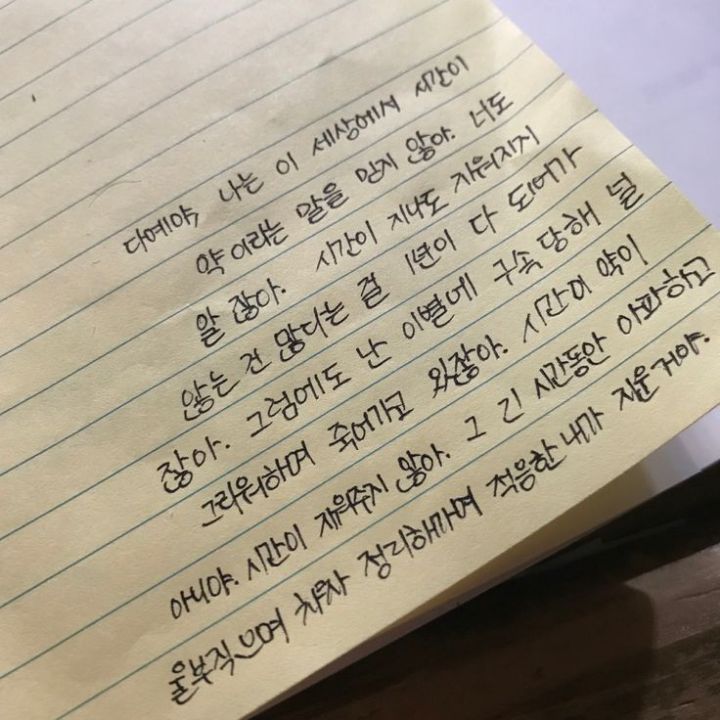 다예야, 나는 이 세상에서 시간이
약이라는 말을 믿지 않아. 너도
알잖아. 시간이 지나도 지워지지
않는 건 많다는 걸 1년이 다 되어가
잖아. 그럼에도 난 이별에 구속 당해 널
그리워하며 죽어가고 있잖아. 시간이 약이
아니야. 시간이 재워주지 않아. 그 긴 시간동안 아파하고
울부직으며 차차 정리해가며 적응한 내가 지운거야.